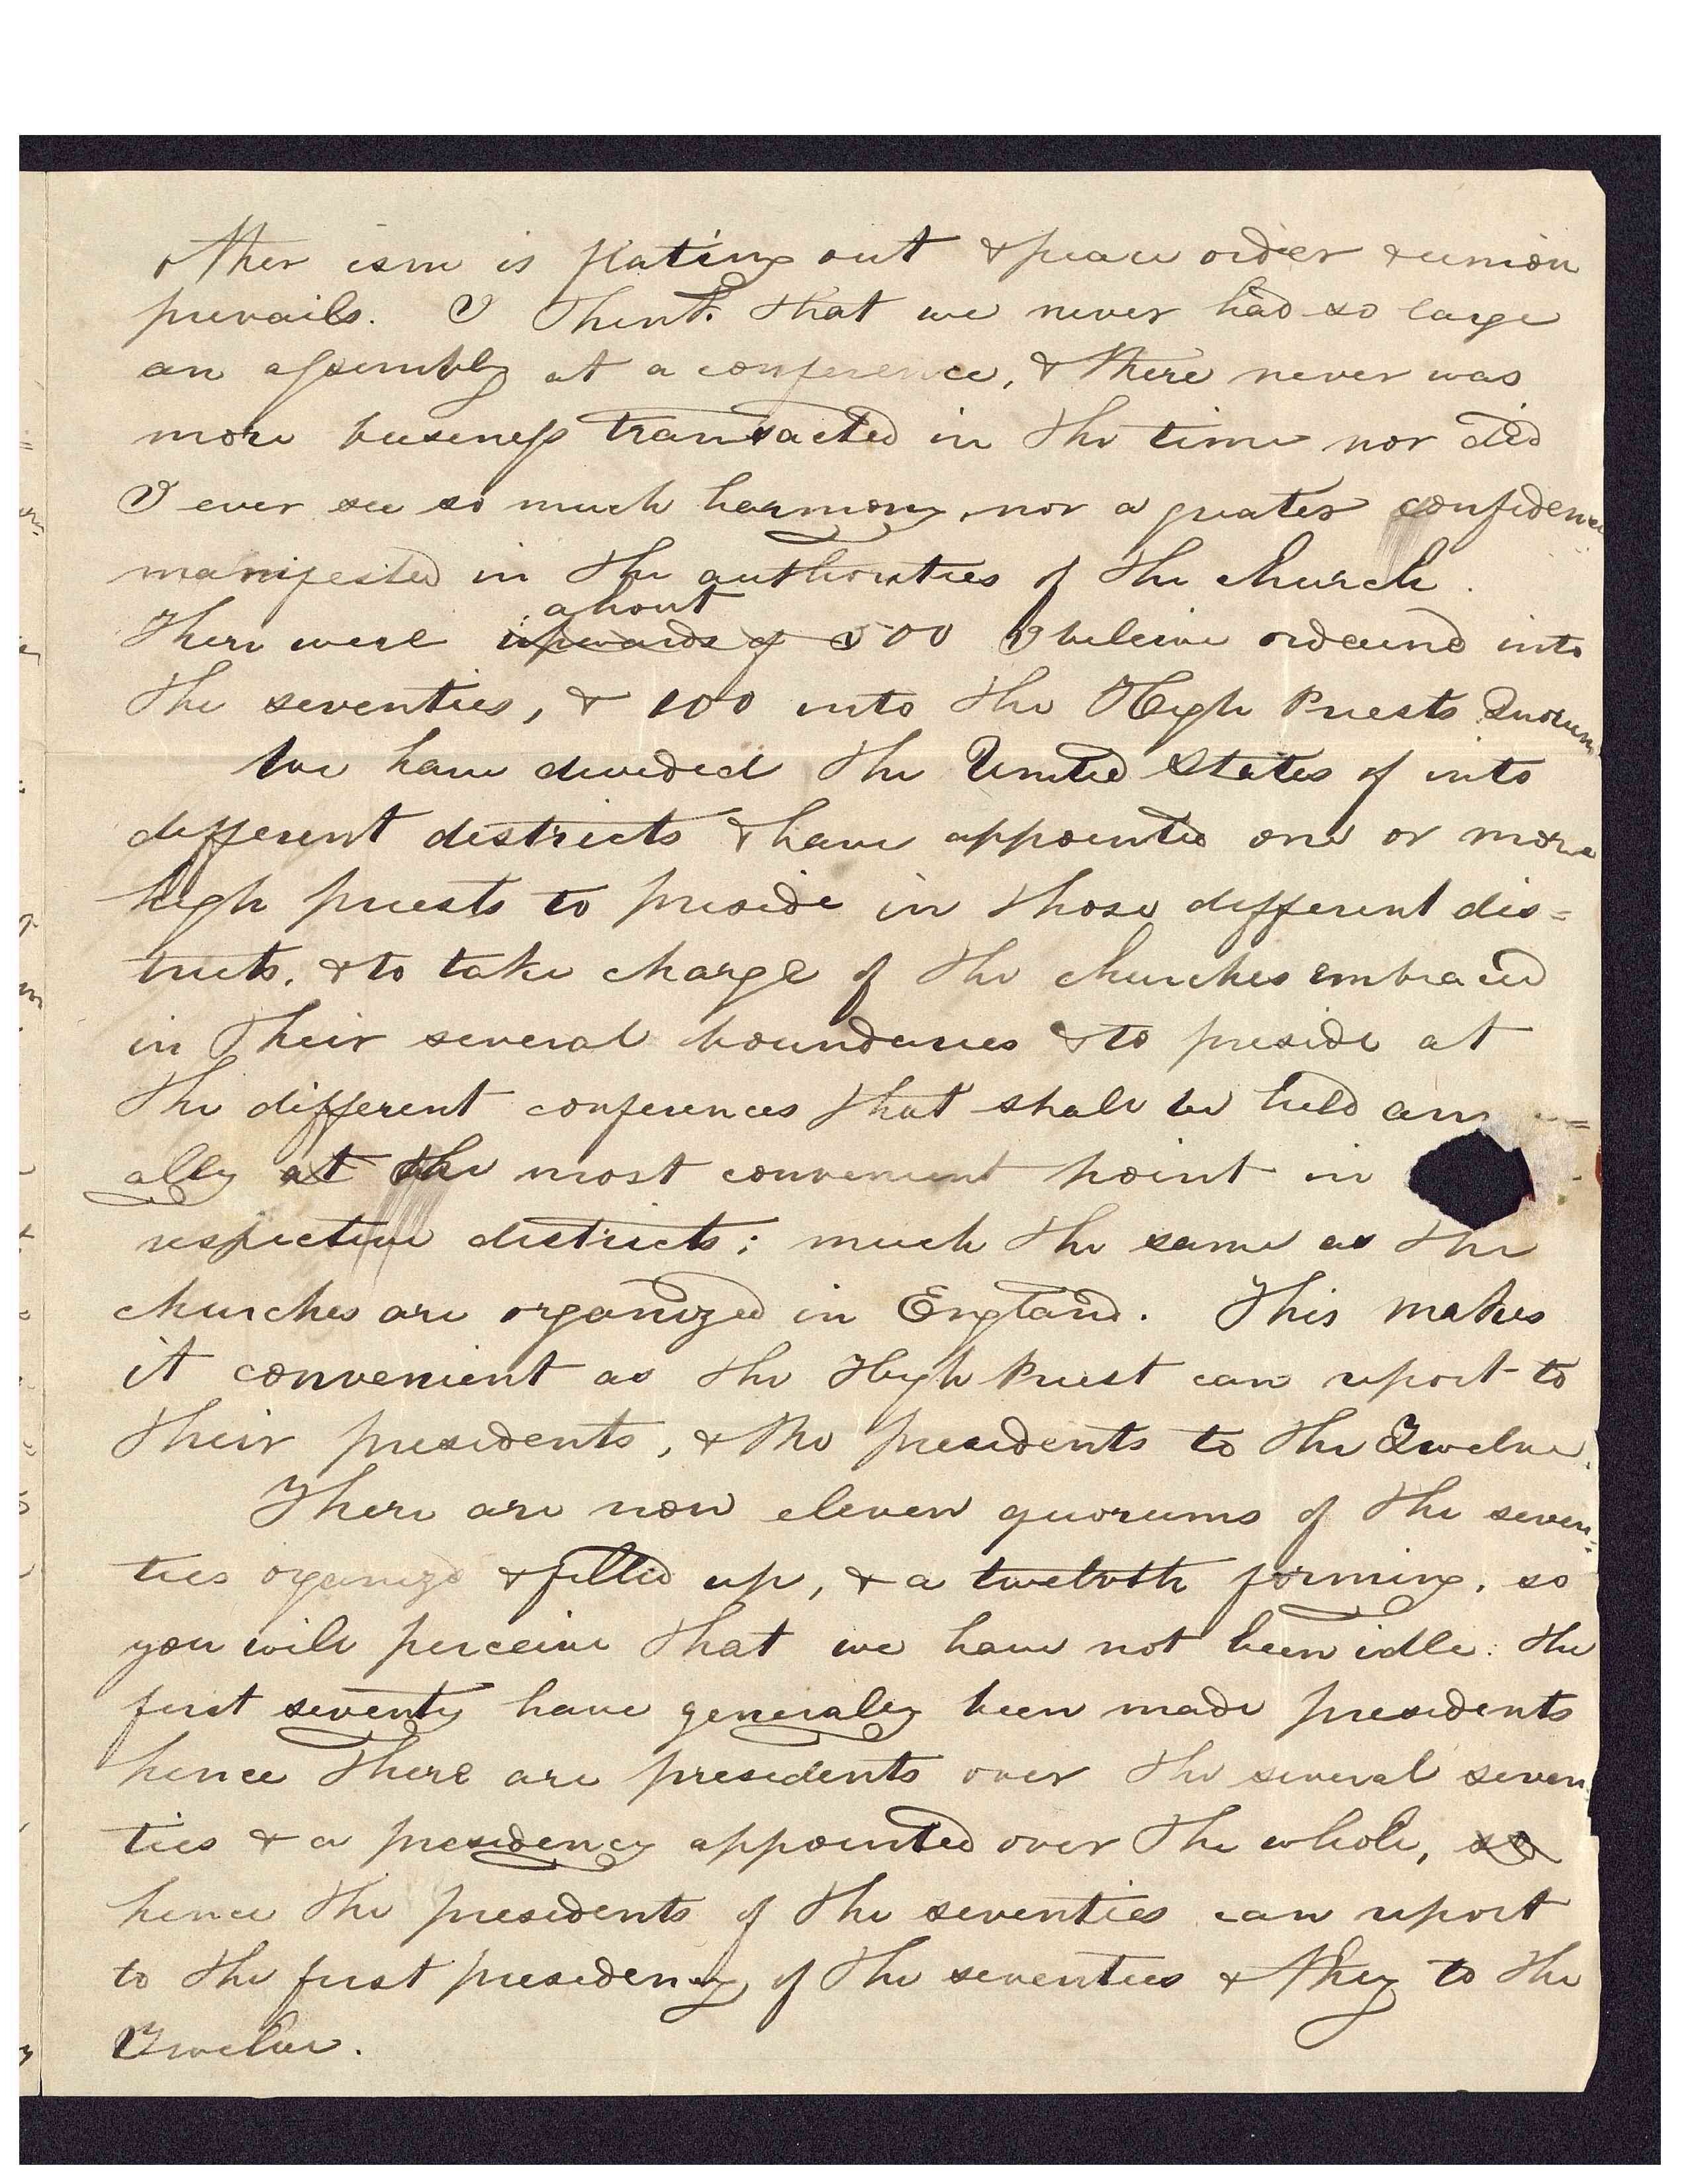 other ism is flating out & peace order & union
prevails. I think that we never had so large
an assembly at a conference, & there never was
more buseness transacted in the time nor did
I ever see so much harmony, nor a greater confidence
manifested in the authorities of the church.
about
There were upwards of 500 I beleive ordeined into
the seventies, & 100 into the High Priests Quorum
We have diveded the United States of into
different districts & have appointed one or more
high priests to preside in those different dis=
tricts, & to take charge of the churches embraced
in their several boundaries & to preside at
the different conferences that shall be held ann
ally at the most convenient point in
respective districts; much the same as the
churches are organized in England. This makes
it convenient as the High Priest can report to
their presidents, & the presidents to the Twelve.
There are now eleven quorums of the seven=
ties organized & filled up, & a twelvth forming, so
you will perceive that we have not been idle: the
first seventy have generaly been made presidents
hence there are presidents over the several seven
ties & a presidency appointed over the whole, so
hence the presidents of the seventies can report
to the first presidency of the seventies & they to the
Twelve.